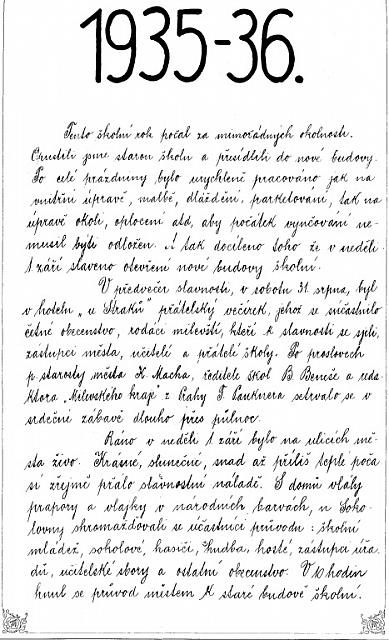 1935-36.
Tento školní rok počal za mimořádných okolností.
Opustili jsme starou školu a přesídlili do nové budovy.
Po celé prázdniny bylo urychleně pracováno jak na
vnitřní úpravě, malbě, dláždění, parketování, tak na
úpravě okolí, oplocení atd, aby počátek vyučování ne-
musil býti odložen. A tak docíleno toho že v neděli
1 září slaveno otevření nové budovy školní.
V předvečer slavnosti, v sobotu 31. srpna, byl
v hotelu „u Straků" přátelský večírek, jehož se súčastnilo
četné obecenstvo, rodáci milevští, kteří k slavnosti se sjeli,
zástupci města, učitelé a přátelé školy. Po proslovech
p. starosty města K. Macha, ředitele škol B. Beniše a reda-
ktora „Milevského kraje" z Prahy F. setrvalo se v
srdečné zábavě dlouho přes půlnoc.
Ráno v neděli 1 září bylo na ulicích mě-
sta živo. Krásné, slunečné, snad až příliš teplé poča-
sí zřejmě přálo slavnostní náladě. S domů vlály
prapory a vlajky v národních barvách, u Soko-
lovny shromažďovali se účastníci průvodu: školní
mládež, sokolové, hasiči, hudba, hosté, zástupci úřa-
dů, učitelské sbory a ostatní obecenstvo. V 10 hodin
hnul se průvod městem k staré budově školní.